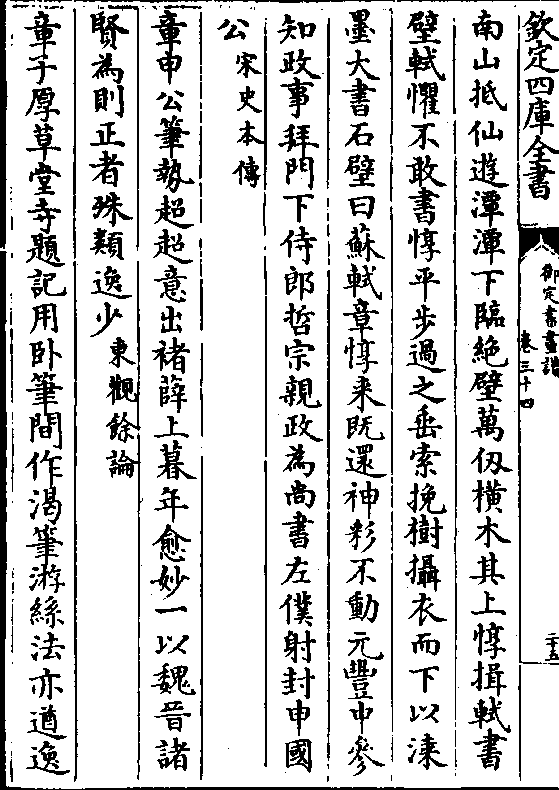 欽定四庫全書
御定書畫譜
卷三十四
二十五
南山抵仙遊潭潭下臨絶壁萬仭横木其上惇揖軾書
壁軾懼不敢書惇平步過之垂索挽樹攝衣而下以漆
墨大書石壁曰蘇軾章惇來既還神彩不動元豐中參
知政事拜門下侍郎哲宗親政為尚書左僕射封申國
公宋史本傳
章申公筆勢超超意出褚薛上暮年愈妙一以魏晉諸
賢為則正者殊類逸少東觀餘論
章子厚草堂寺題記用卧筆間作渴筆游絲法亦遒逸